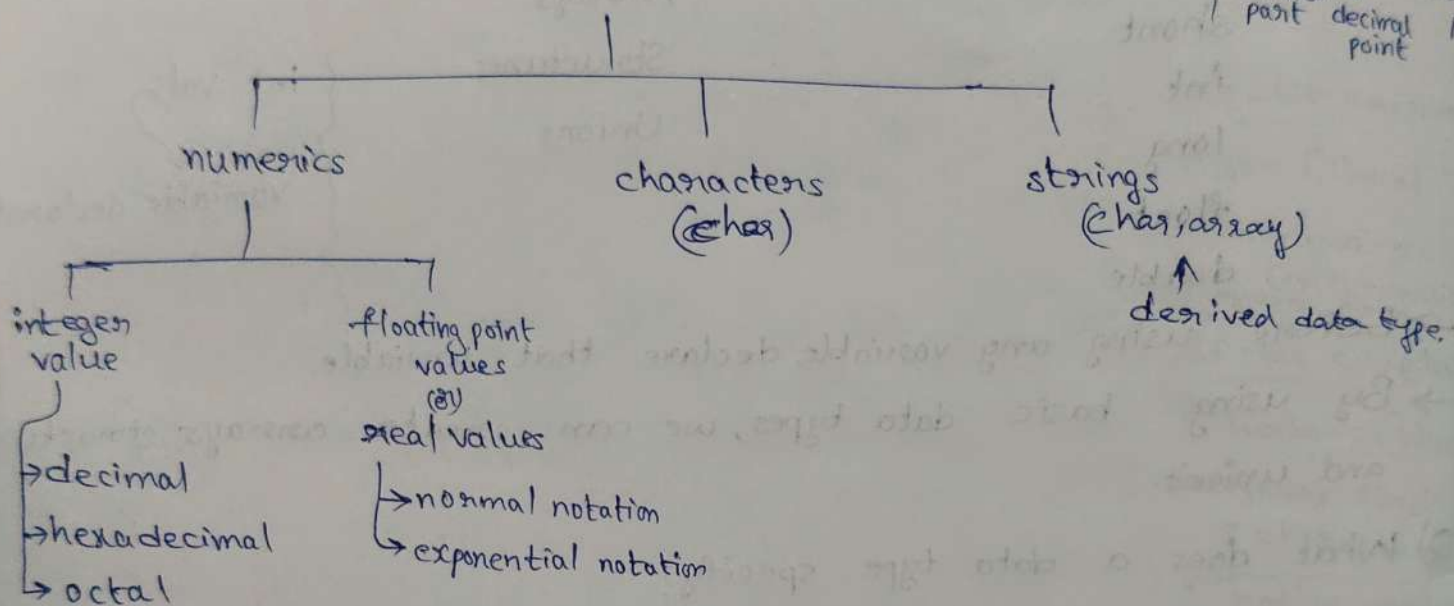 part decimal
point
numerics
characters
(char)
strings
(char, array)
derived data type.
integer
value
floating point
values
(or)
real values
→decimal
→hexadecimal
→octal
→normal notation
→exponential notation